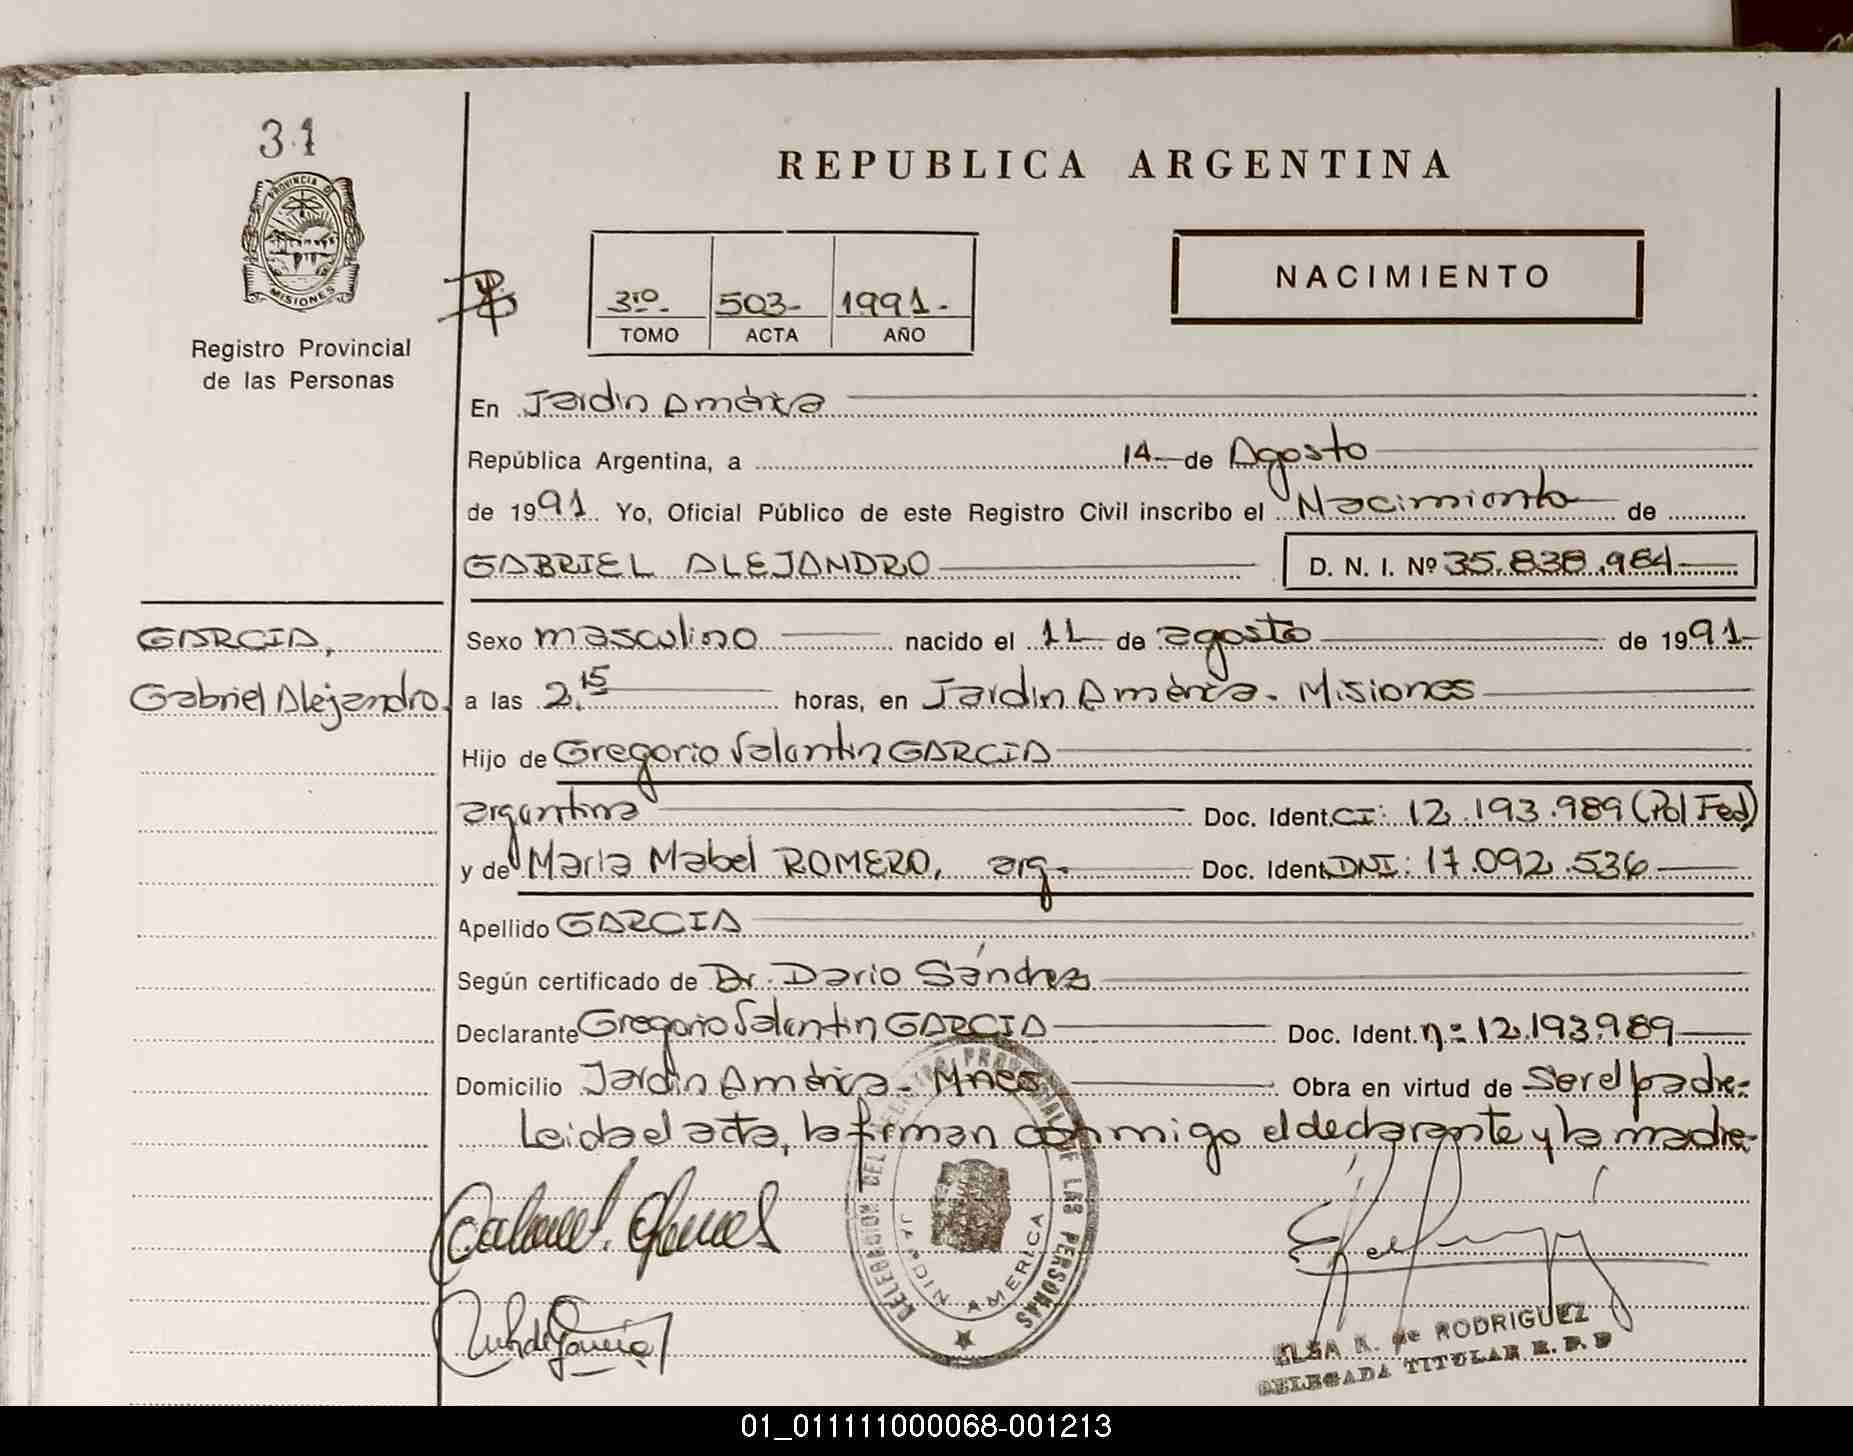 31
PROVINCIA D
MISIONES
Registro Provincial
de las Personas
REPUBLICA ARGENTINA
3ro.- 503- 1991.-
TOMO ACTA AÑO
NACIMIENTO
En Jardín América
República Argentina, a 14 de Agosto
de 1991. Yo, Oficial Público de este Registro Civil inscribo el Nacimiento de
GABRIEL ALEJANDRO D. N. I. Nº 35.838.984
GARCIA,
Gabriel Alejandro.
Sexo masculino nacido el 11 de agosto de 1991-
a las 2.15 horas, en Jardín América. Misiones
Hijo de Gregorio Valentín GARCIA
argentina Doc. Ident. CI: 12.193.989 (Pol Fed)
y de María Mabel ROMERO, arg. Doc. Ident. DNI: 17.092.536
Apellido GARCIA
Según certificado de Dr. Darío Sánchez
Declarante Gregorio Valentín GARCIA Doc. Ident. nº 12.193.989
Domicilio Jardín América. Mnes Obra en virtud de Ser el padre.
Leida el acta, la firman conmigo el declarante y la madre.
DELEGACION DEL REGISTRO PROVINCIAL DE LAS PERSONAS
JARDIN AMERICA
ELSA R. de RODRIGUEZ
DELEGADA TITULAR R. P. P
01_011111000068-001213